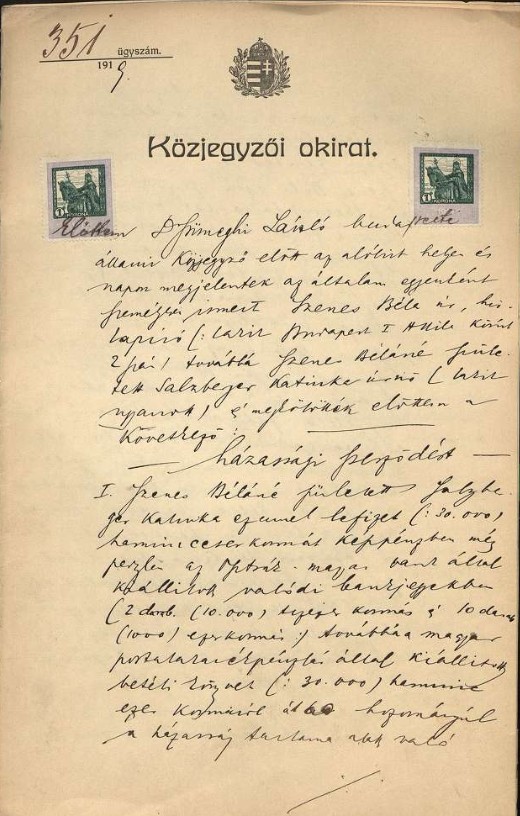 351 ügyszám.
1919.
Közjegyzői okirat.
1 KORONA
1 KORONA
Előttem Dr Sümeghi László budapesti
állami Közjegyző előtt az alólirt helyen és
napon megjelentek az általam egyenként
személyesen ismert Szenes Béla úr, hir
lapíró (: lakik Budapest I Attila körút
2 szám) továbbá Szenes Béláné szüle
tett Salzberger Katinka úrnő ( lakik
ugyanott) és megkötötték előttem a
következő:
házassági szerződést
I. Szenes Béláné született Salzber
ger Katinka ezennel lefizet (: 30.000)
harmincezer koronát készpénzben még
pedig az Osztrák-magyar bank által
kiállított valódi bankjegyekben
(2 darab (10.000) tízezer koronás és 10 darab
(1000) ezer koronás:) továbbá a magyar
postatakarékpénztár által kiállított
betéti könyvet (: 30.000) harminc
ezer koronáról hozományul
a házasság tartama alatt való